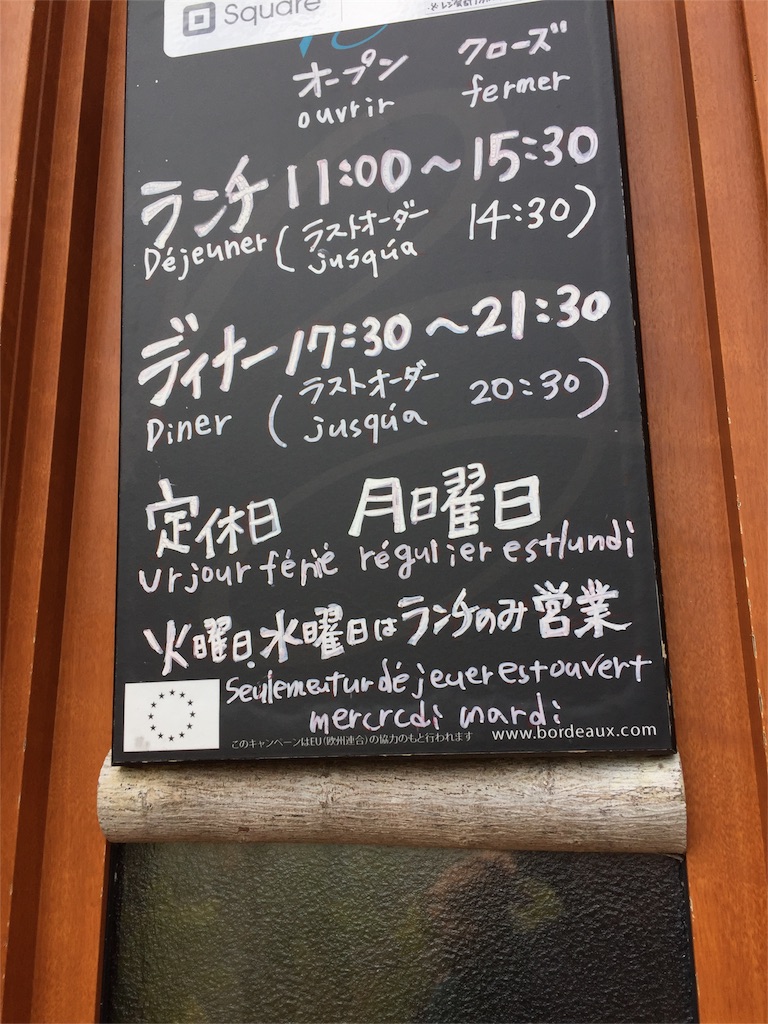 Square
オープン クローズ
ouvrir fermer
ランチ 11:00～15:30
Déjeuner (ラストオーダー 14:30)
jusqúa
ディナー 17:30～21:30
Diner (ラストオーダー 20:30)
jusqúa
定休日 月曜日
urjour férié régulier est lundi
火曜日、水曜日はランチのみ営業
Seulemeutur déjeuer est ouvert
mercredi mardi
このキャンペーンはEU(欧州連合)の協力のもと行われます www.bordeaux.com